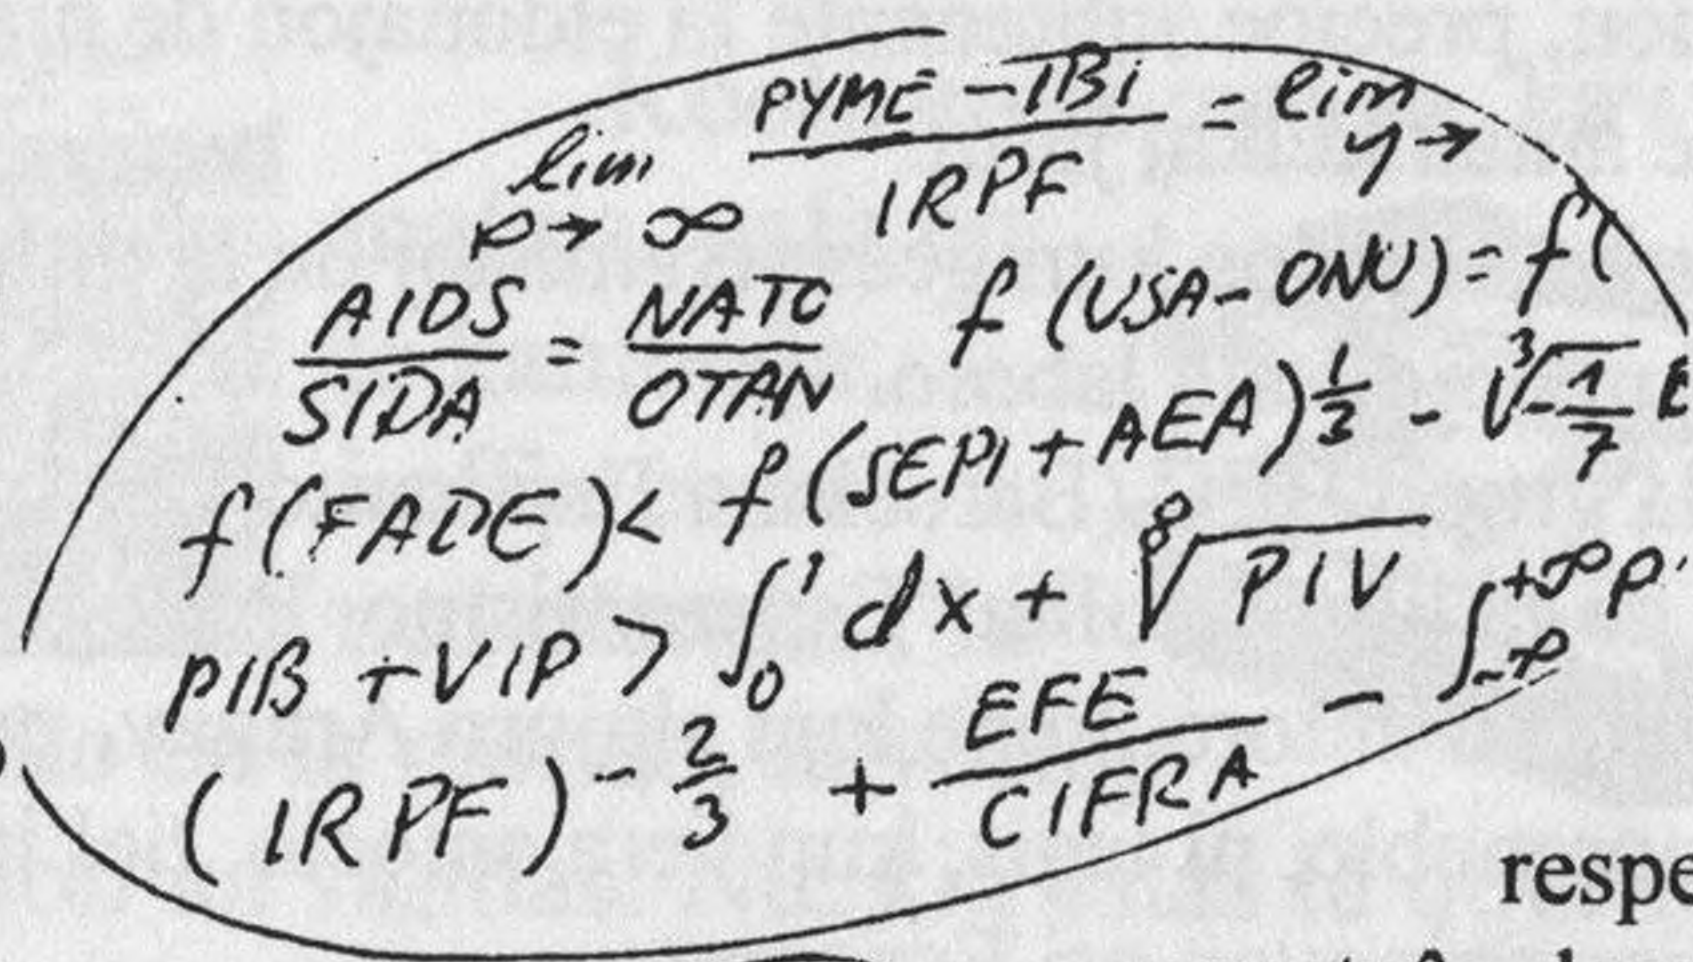 lim p→∞ PYME-IBI / IRPF = lim y→
AIDS / SIDA = NATO / OTAN f (USA-ONU) = f(
f(FADE) < f(SEPI + AEA)^1/3 - ∛-1/7
PIB + VIP > ∫₀¹ dx + ⁸√PIV - ∫₋∞^+∞ P
(IRPF)^-2/3 + EFE / CIFRA -
respe